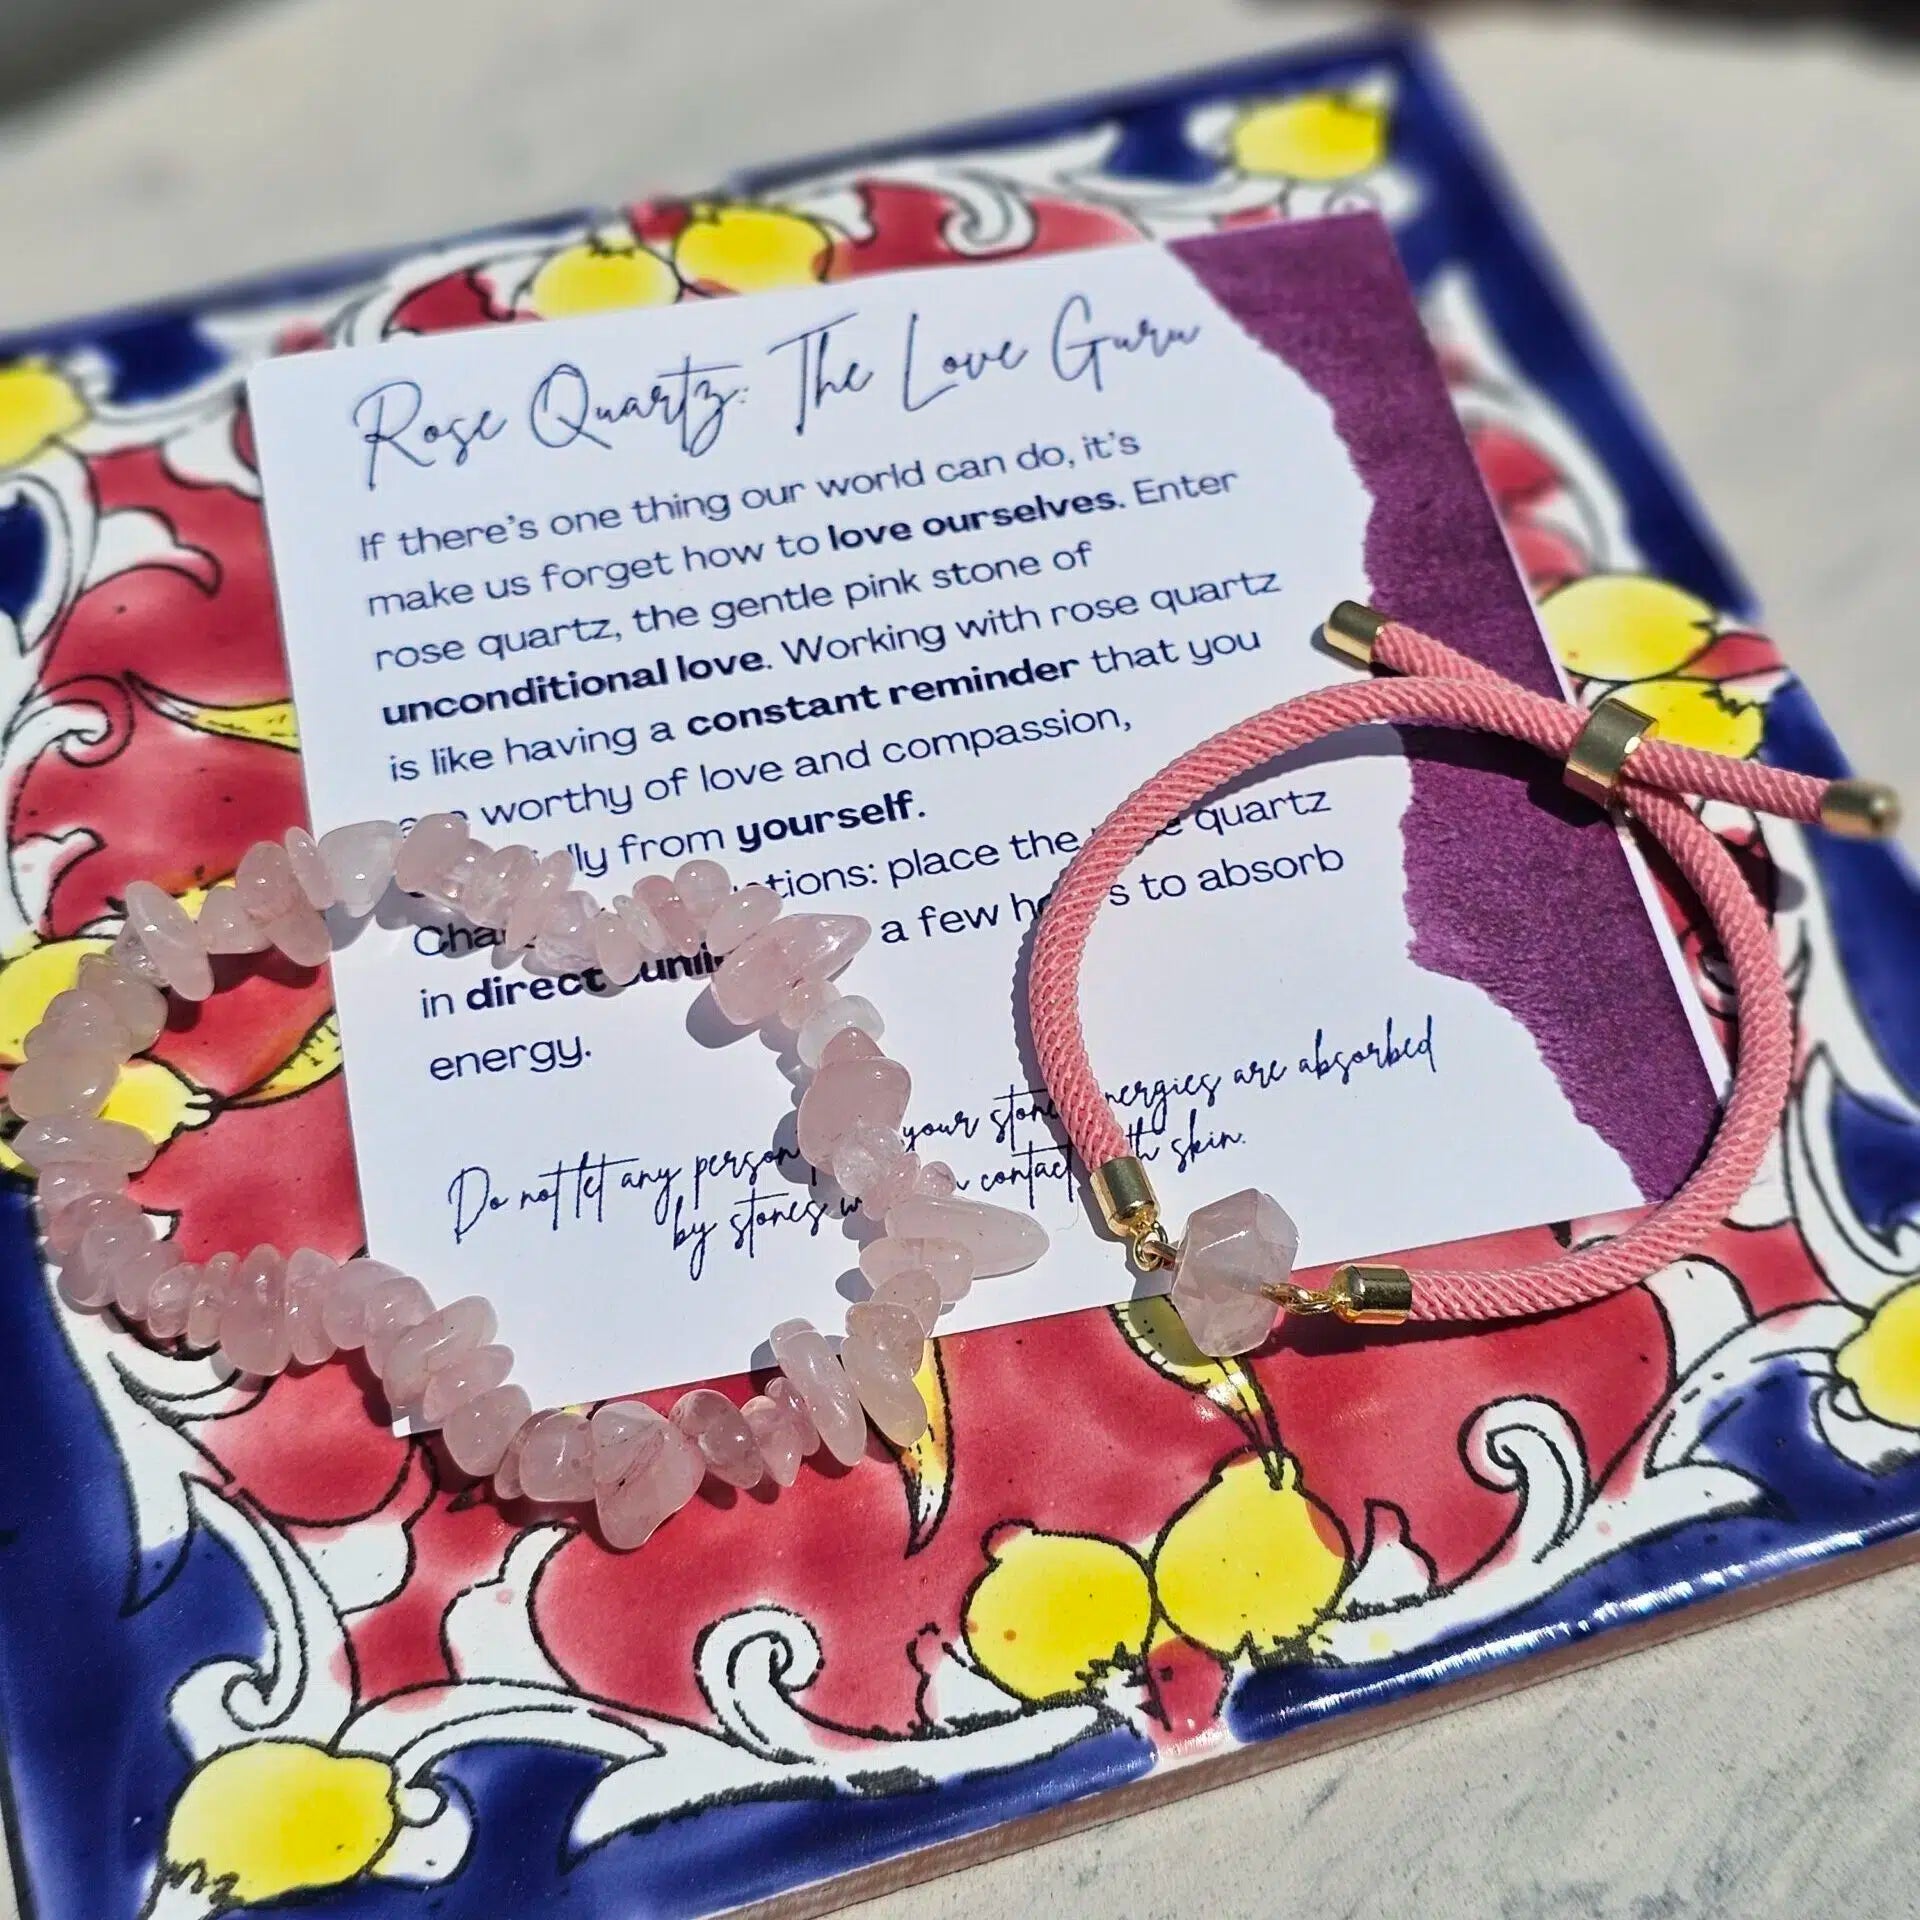 Rose Quartz: The Love Guru
If there's one thing our world can do, it's
make us forget how to love ourselves. Enter
rose quartz, the gentle pink stone of
unconditional love. Working with rose quartz
is like having a constant reminder that you
worthy of love and compassion,
from yourself.
place the quartz
in direct a few to absorb
energy.
Do not let any person your energies are absorbed
by stones contact skin.